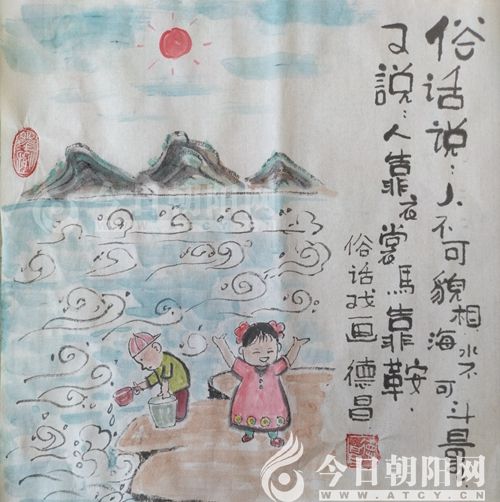 俗话说：人不可貌相.海水不可斗量
又说：人靠衣裳馬靠鞍.
俗话戏画德昌
今日朝阳网
WWW.ATCY.CN